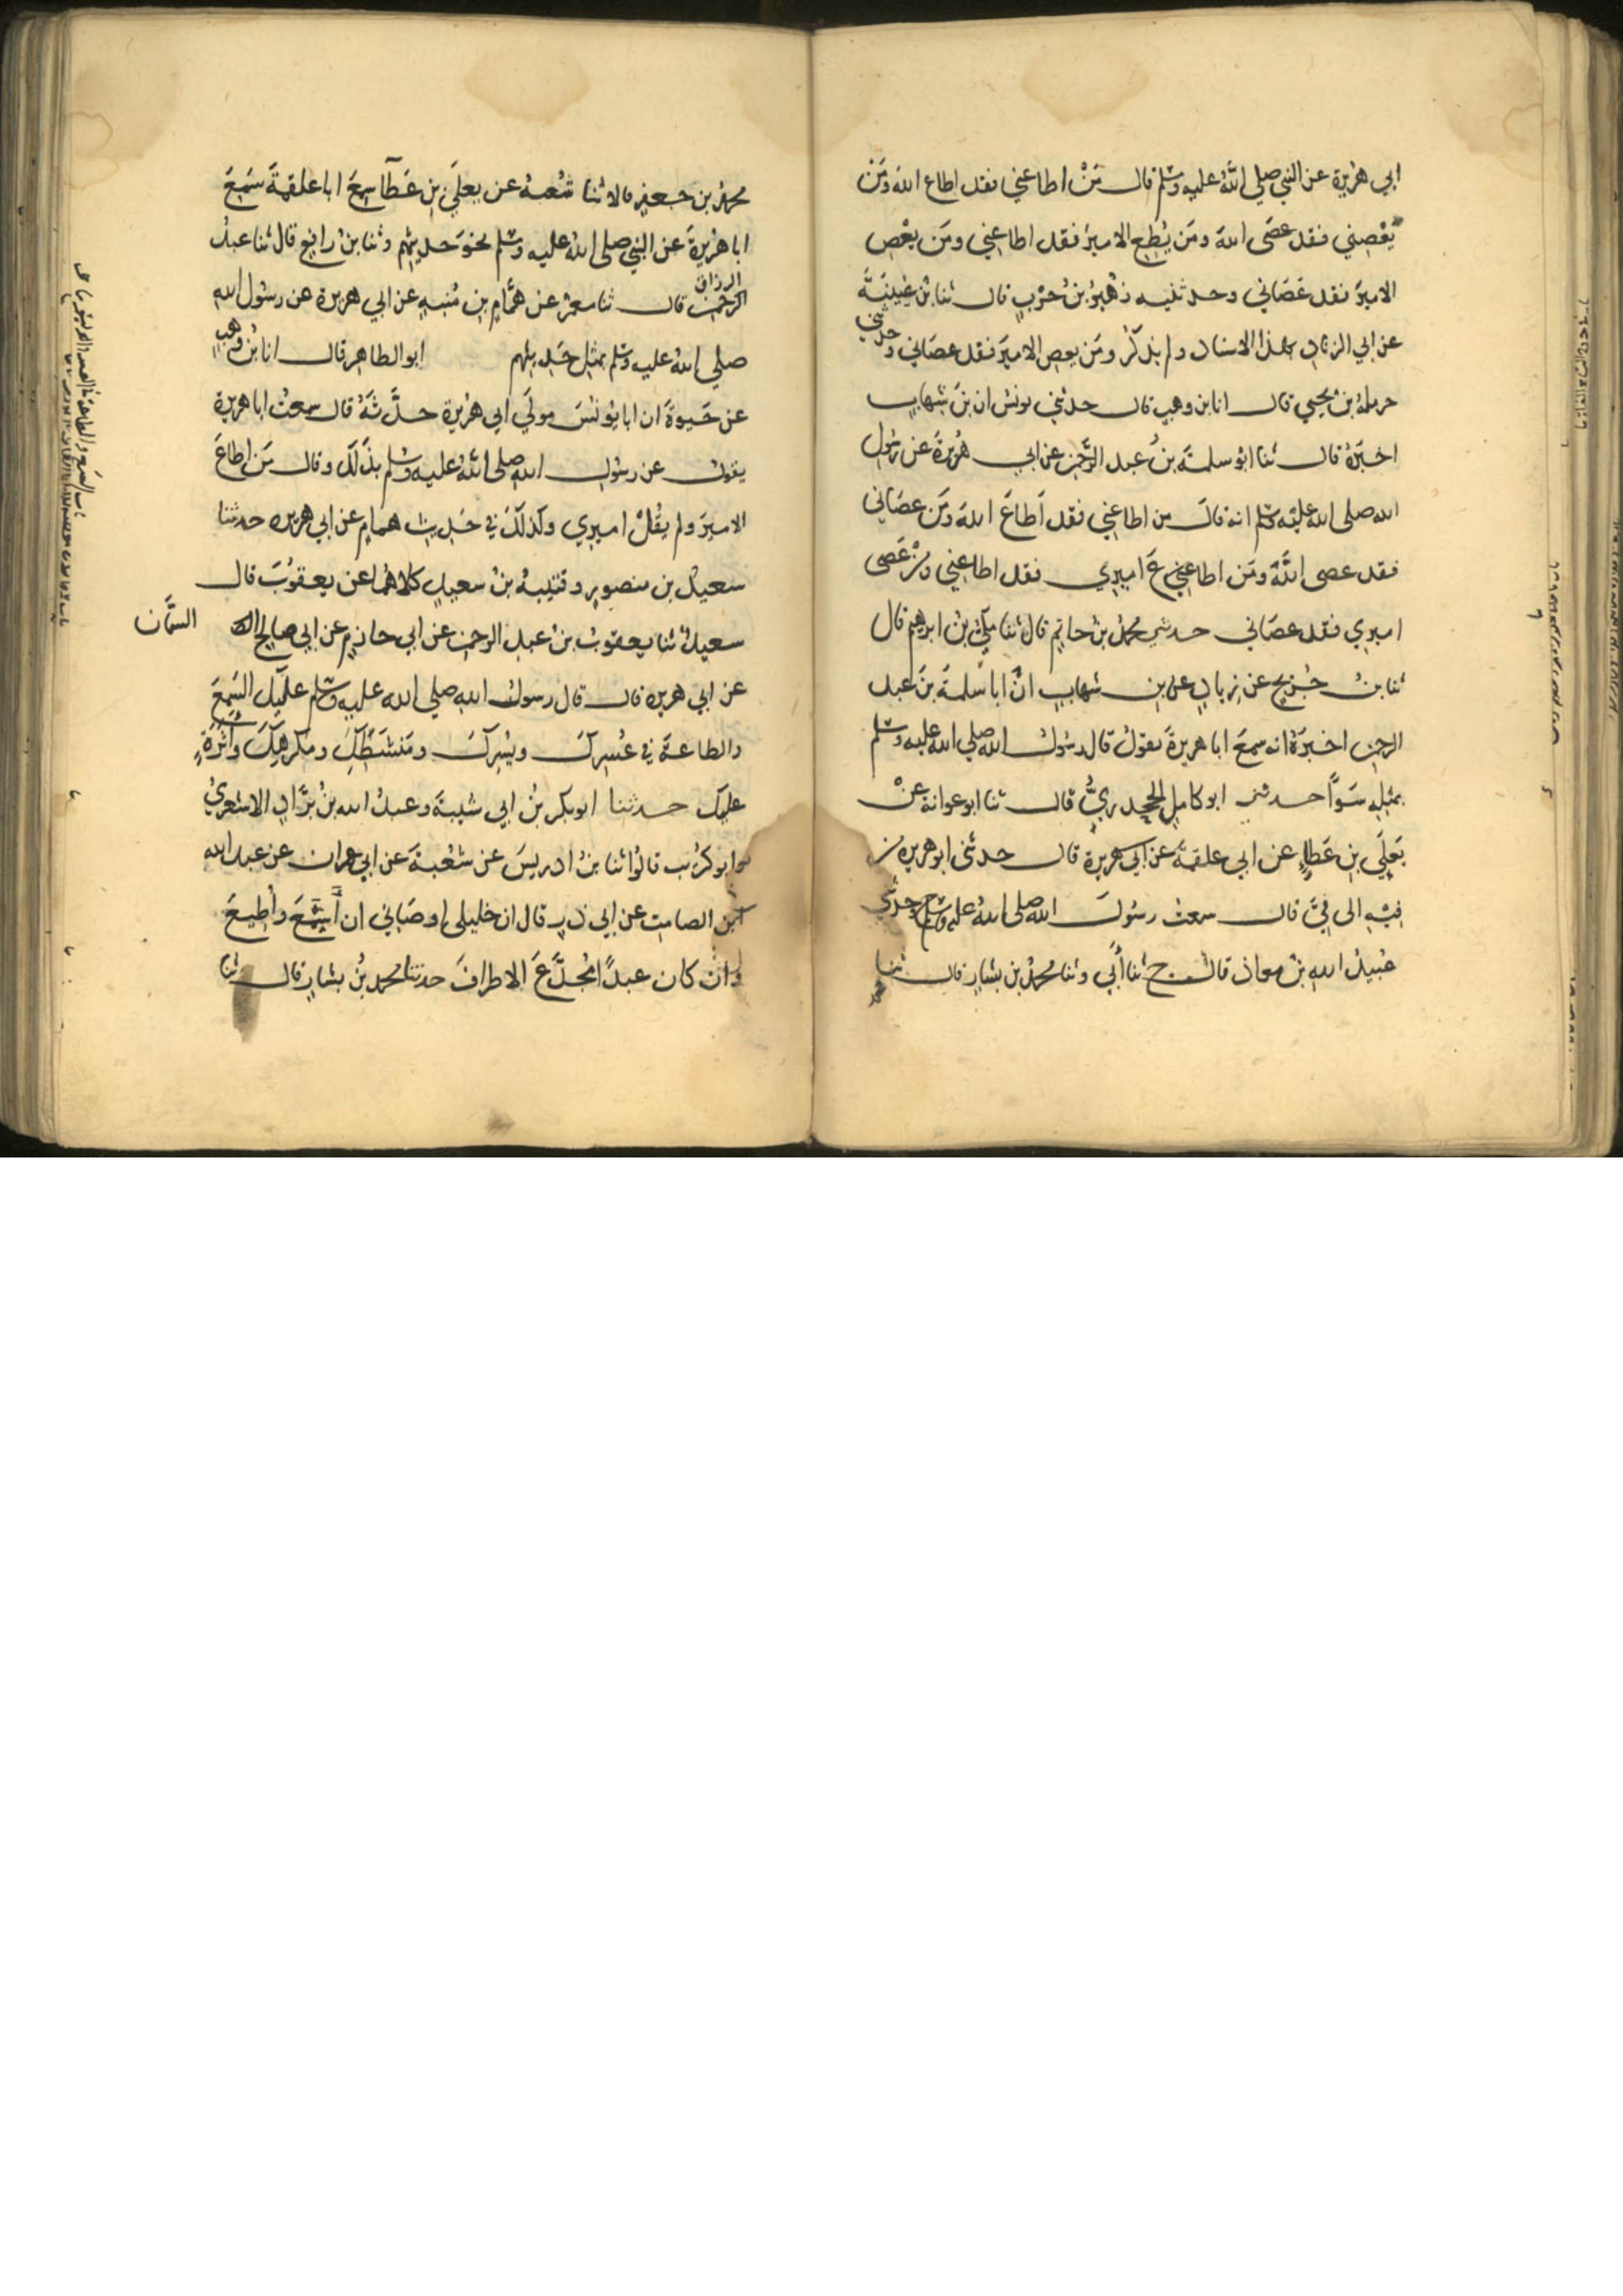 ابي هريرة عن النبي صلى الله عليه وسلم قال مَنْ اطاعني فقد اطاع الله ومَن
يَعْصِني فقد عصَى الله ومَن يُطِع الاميرَ فقد اطاعني ومَن يعْصِ
الاميرَ فقد عَصَاني وحدثنيه زهيرُ بنُ حرْبٍ قال ثنا بنُ عُيَيْنَةَ
عن ابي الزنادِ بهذا الاسناد ولم يذكُرْ ومَن يعصِ الاميرَ فقد عصَاني وحدثني
حرملةُ بن يحيي قال انا بن وهبٍ قال حدثني يونس ان بنَ شهابٍ
اخبَرَهُ قال ثنا ابو سلمةَ بنُ عبد الرَّحمن عن ابي هُرَيرةَ عن رسُول
الله صلى الله عليه وسلم انه قالَ من اطاعني فقد اَطَاعَ اللهَ ومَن عصَاني
فقد عصى اللَّهَ ومَن اطاع اميري فقد اطاعني ومَنْ عَصَى
اميري فقد عصَاني حدثني محمدُ بنُ حاتمٍ قال ثنا مكيُّ بنُ ابرهيم قال
ثنا بنُ جُرَيجٍ عن زيادٍ عن بن شهابٍ انَّ ابا سلمةَ بنَ عبد
الرحمن اخبرَهُ انه سمعَ ابا هريرةَ يقولُ قال رسُولُ الله صلى الله عليه وسلم
بمثلِهِ سَوَاً حدثني ابو كاملٍ الجحدريُّ قال ثنا ابو عوانةَ عنْ
يَعلَى بنِ عَطاءٍ عن ابي علقمةَ عن ابي هريرةَ قال حدثنى ابو هريره من
فِيْهِ الى فِيَّ قال سمعتُ رسُولَ الله صلى اللهُ عليه وسلم ح وحدثني
عُبيدُ اللهِ بنُ معاذ قال ح ثنا اَبي وثنا محمدُ بن بشارٍ قال ثنا
محمدُ بن جعفر قالا ثنا شعبهُ عن يعلَى بنِ عَطَآ سمعَ ابا علقمةَ سَمِعَ
ابا هريرةَ عن النبي صلى اللهُ عليه وسلم نحوَ حديثِهم وثنا بنُ رافِعٍ قال ثنا عبدُ
الرزاق
الرحمن قال ثنا معمرٌ عن همَّامِ بنِ مُنبهٍ عن ابي هريرة عن رسُول اللهِ
صلي اللهُ عليه وسلم بمثلِ حَدِيثهم ابو الطاهرِ قال انا بنُ وهبٍ
عن حَيوةَ ان ابا يُونُسَ مولَي ابي هُرَيرة حدَّثَهُ قال سمعتُ ابا هريرة
يقول عن رسُولِ اللهِ صلى اللهُ عليه وسلم بذَلكَ وقال مَن اطاعَ
الاميرَ ولم يقُلْ اميري وكذلكَ في حَديث همامٍ عن ابي هريره حدثنا
سعيدُ بن منصورٍ وقتيبةُ بنُ سعيدٍ كلاهُمَا عن يعقوُبَ قال
سعيدٌ ثنا يعقوبُ بنُ عبد الرحمن عن ابي حازمٍ عن ابي صالح السمَّان
عن ابي هريره قال قال رسولُ اللهِ صلي الله عليه وسلم علَيك السَمعَ
والطاعةَ في عُسرِكَ ويُسرِكَ ومَنشَطِكَ ومكرهِكَ واَثَرَةٍ
عليك حدثنا ابو بكر بنُ ابي شيبةَ وعبدُ الله بنُ برَّادٍ الاشعريُّ
وابو كرُيب قالُوا ثنا بنُ ادريسَ عن شعْبةَ عن ابي عمران عن عبد الله
ابن الصامتِ عن ابي ذرٍ قال ان خليلى اوصَاني ان اَسمَعَ واُطِيعَ
وان كان عبدًا مُجدَّعَ الاطرافَ حدثنا محمد بنُ بشارٍ قال ثنا